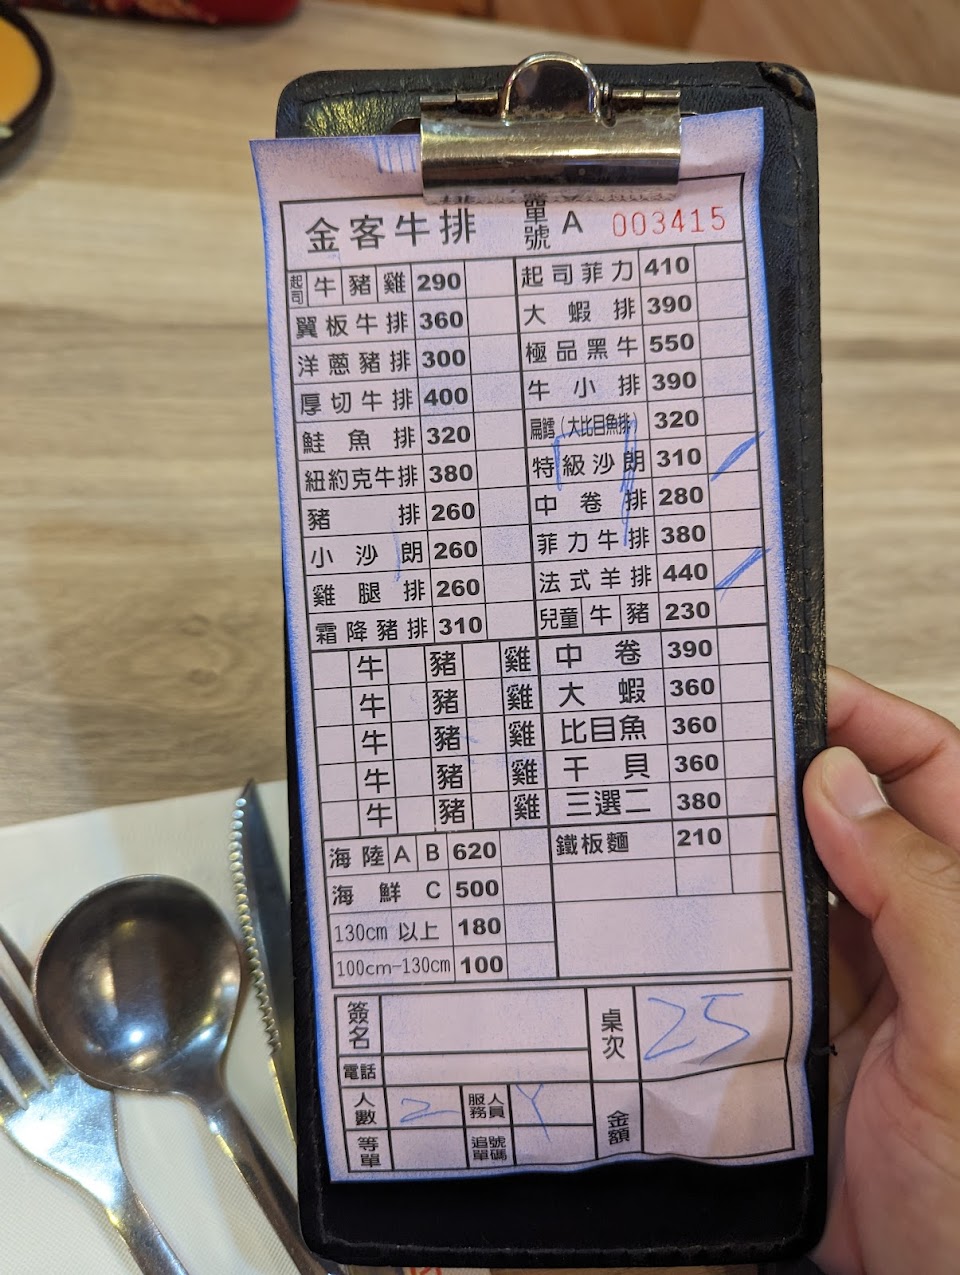 金客牛排 單號 A 003415
起司 牛 豬 雞 290
翼板牛排 360
洋蔥豬排 300
厚切牛排 400
鮭魚排 320
紐約克牛排 380
豬排 260
小沙朗 260
雞腿排 260
霜降豬排 310
起司菲力 410
大蝦排 390
極品黑牛 550
牛小排 390
扁鱈(大比目魚排) 320
特級沙朗 310
中卷排 280
菲力牛排 380
法式羊排 440
兒童 牛 豬 230
牛 豬 雞 中卷 390
牛 豬 雞 大蝦 360
牛 豬 雞 比目魚 360
牛 豬 雞 干貝 360
牛 豬 雞 三選二 380
海陸 A B 620
海鮮 C 500
130cm 以上 180
100cm-130cm 100
鐵板麵 210
簽名
電話
桌次 25
人數 2 服務人員 Y
等單 追單號碼
金額